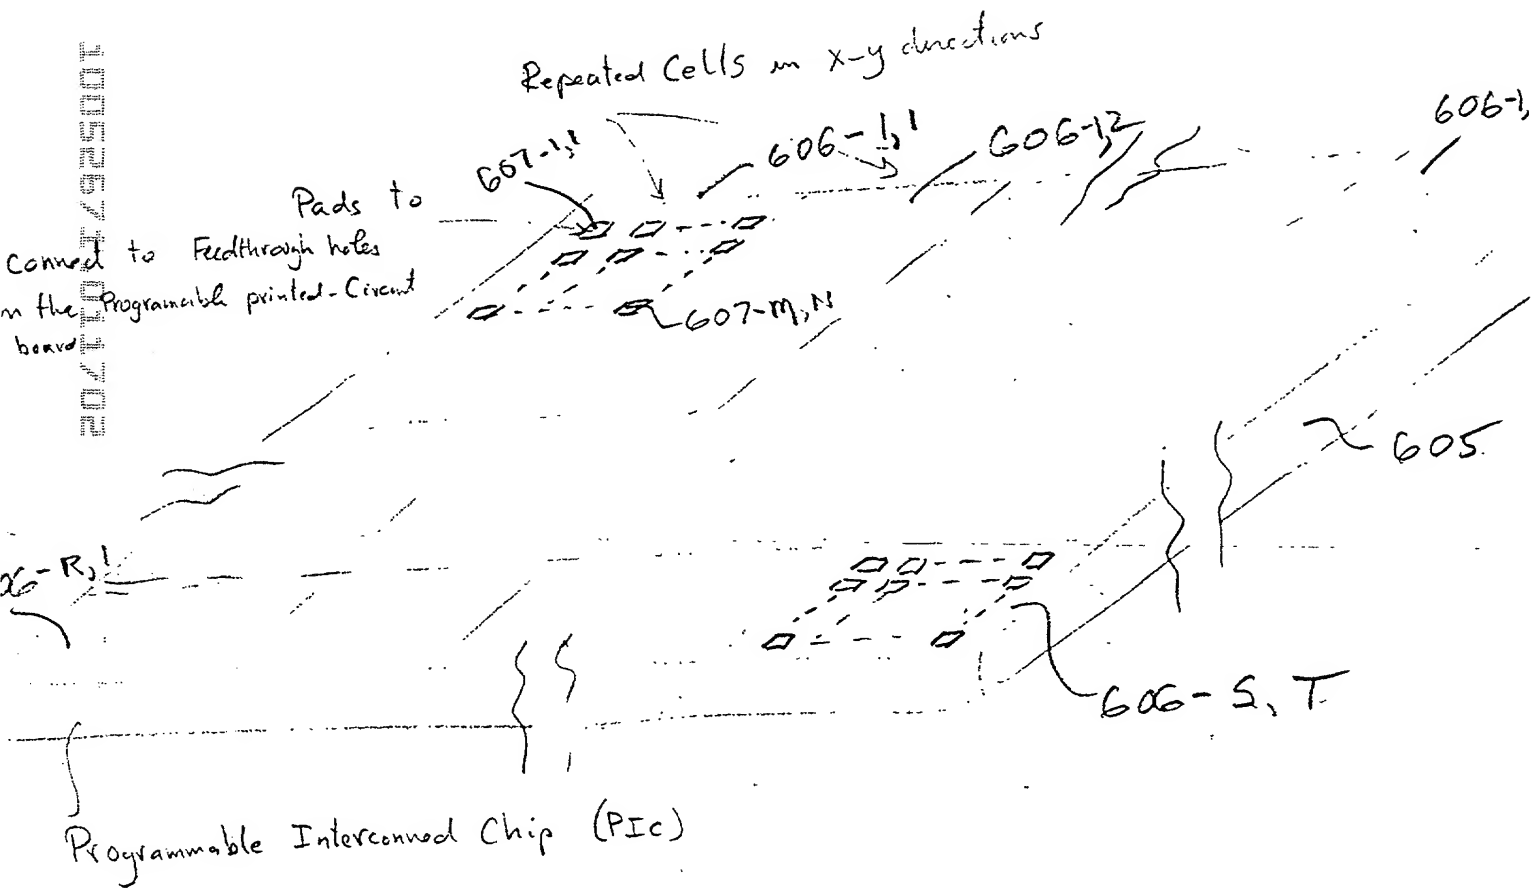 Repeated Cells in x-y directions
607-1,1
606-1,1
606-1,2
606-1,
Pads to
Connect to Feedthrough holes
n the Programcible printed-Circuit
board
607-M,N
605
06-R,1
606-S,T
Programmable Interconned Chip (PIC)